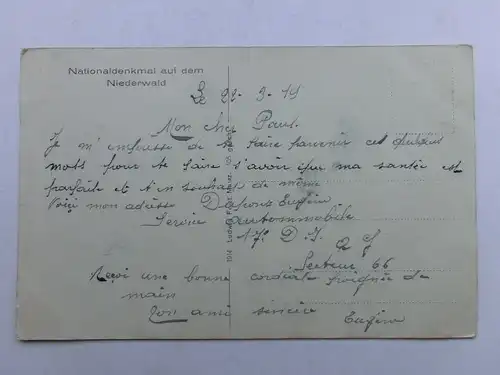 Nationaldenkmal auf dem
Niederwald
Le 22-3-19
Mon cher Paul.
Je m'empresse de te faire parvenir ces quelques
mots pour te faire s'avoir que ma santée est
parfaite et t'en souhait de même
Voici mon adresse Eugène
Service automobile
D. I.
Secteur 66
Reçoi une bonne cordiale poignée de
main
Ton ami sincère
Eugène
1914 Ludwig